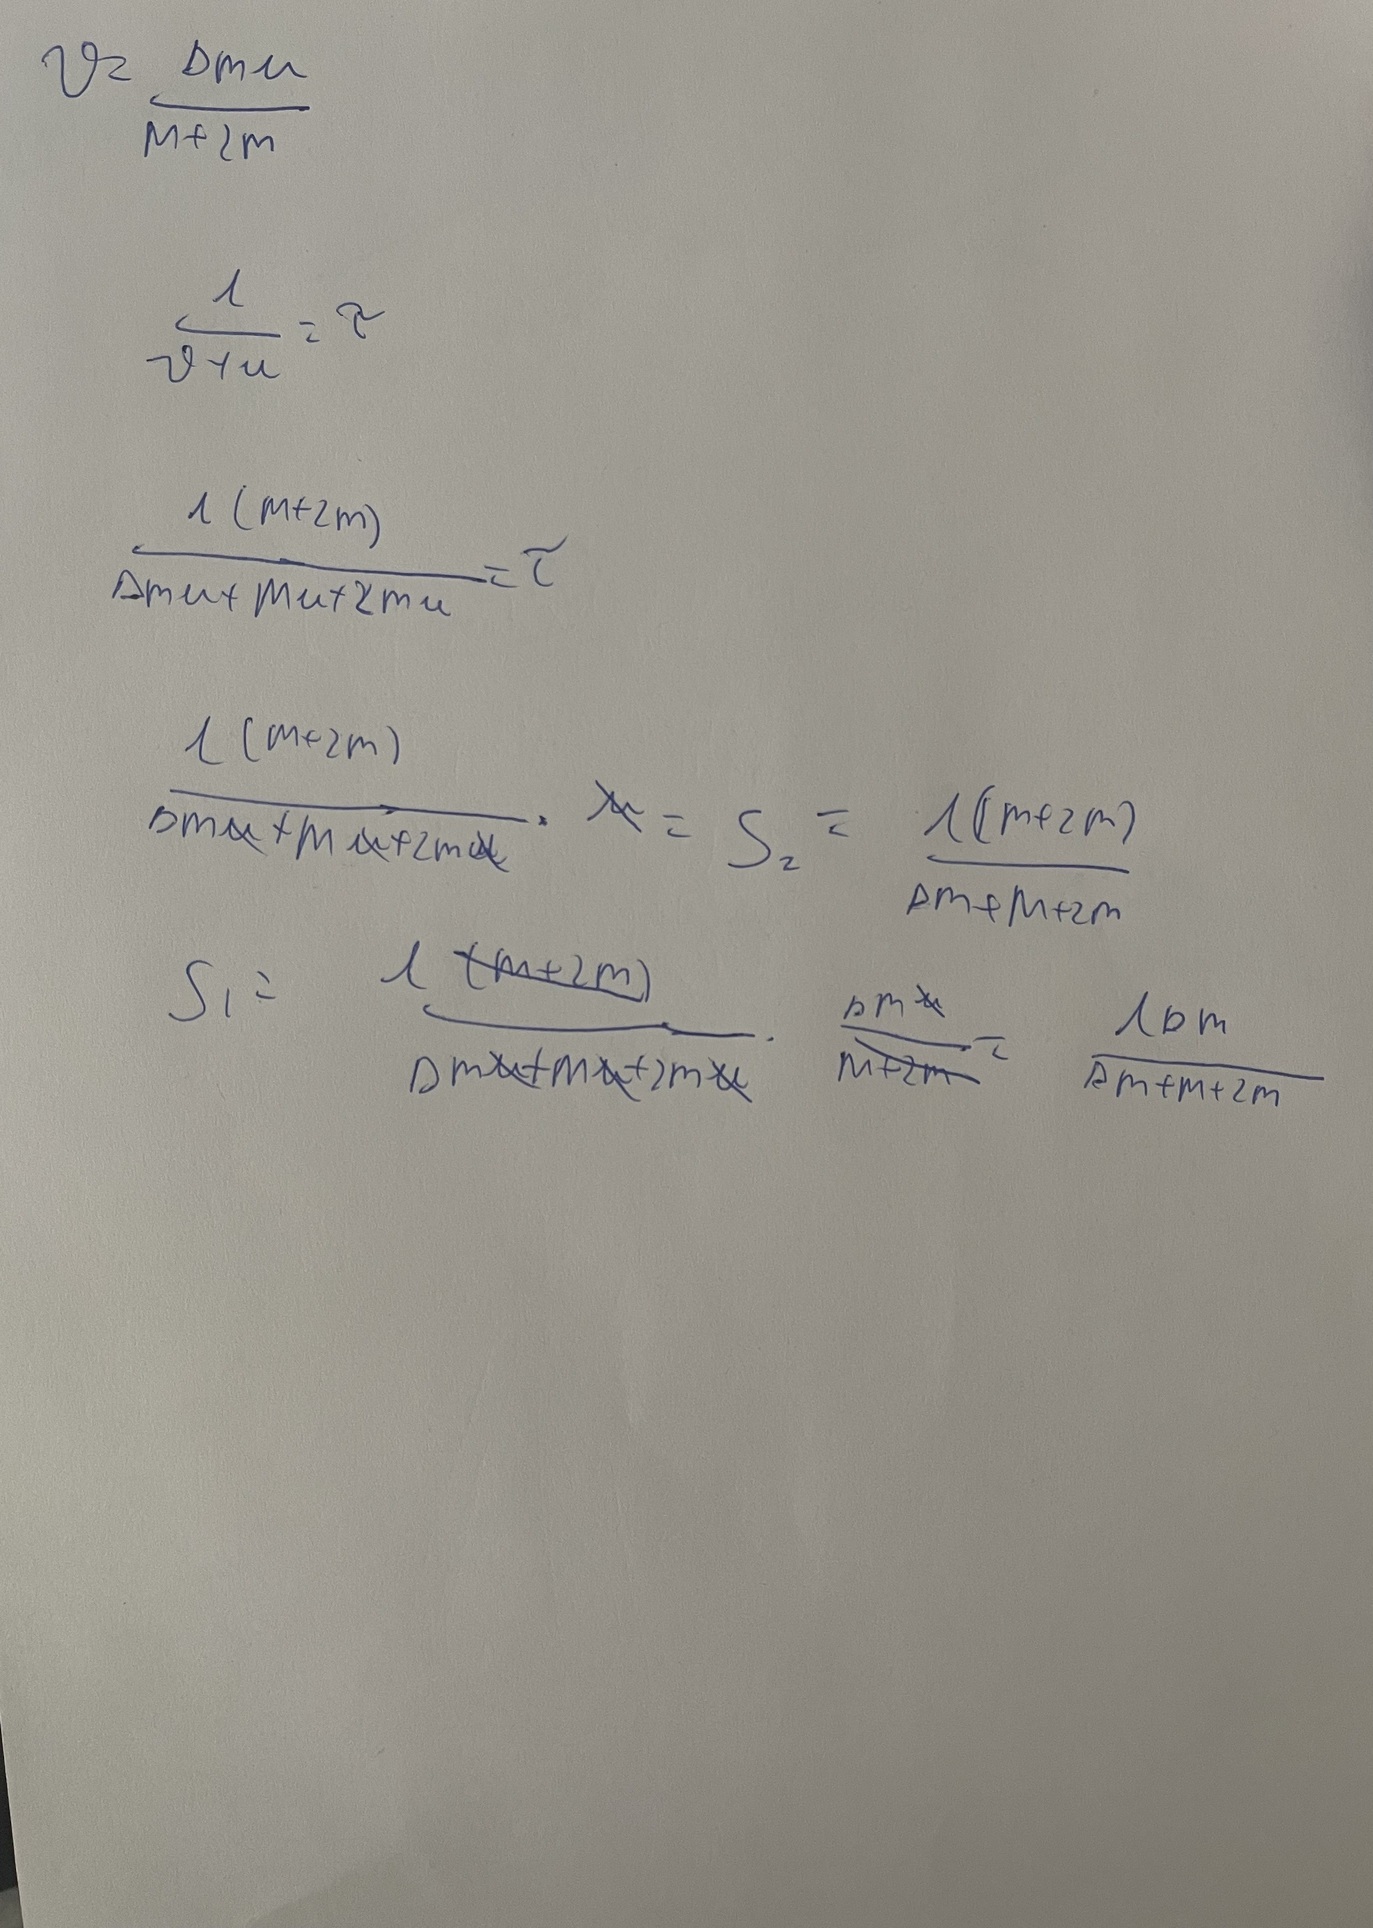 υ = Δmu / (M+2m)
l / (υ+u) = τ
l(M+2m) / (Δmu+Mu+2mu) = τ
l(M+2m) / (Δmu+Mu+2mu) · u = S₂ = l(M+2m) / (Δm+M+2m)
S₁ = l(M+2m) / (Δmu+Mu+2mu) · Δmu / (M+2m) = lΔm / (Δm+M+2m)